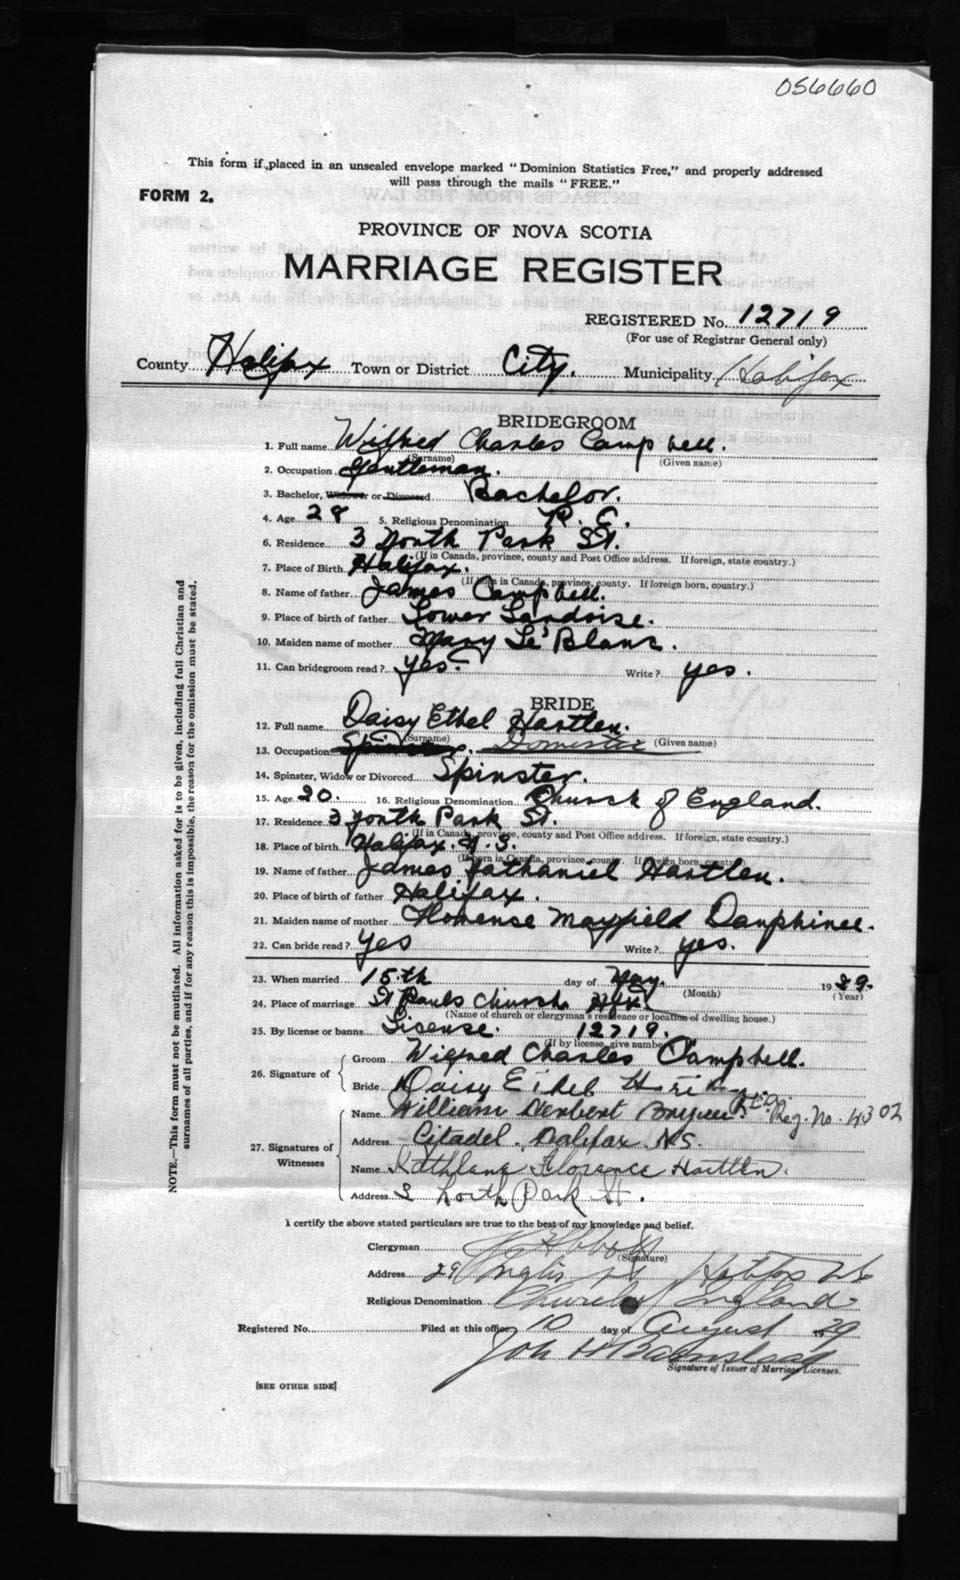 056660
This form if placed in an unsealed envelope marked "Dominion Statistics Free," and properly addressed
will pass through the mails "FREE."
FORM 2.
PROVINCE OF NOVA SCOTIA
MARRIAGE REGISTER
REGISTERED No. 12719
(For use of Registrar General only)
County Halifax Town or District City. Municipality Halifax
BRIDEGROOM
1. Full name Wilfred Charles Campbell.
(Surname) (Given name)
2. Occupation Gentleman.
3 Bachelor, Widower or Divorced Bachelor.
4. Age 28 5. Religious Denomination R. C.
6. Residence 3 North Park St.
(If in Canada, province, county and Post Office address. If foreign, state country.)
7. Place of Birth Halifax.
(If born in Canada, province, county. If foreign born, country.)
8. Name of father James Campbell.
9. Place of birth of father Lower Lardoise.
10. Maiden name of mother Mary Le'Blanc.
11. Can bridegroom read? yes. Write? yes.
BRIDE
12. Full name Daisy Ethel Hartlen.
(Surname) (Given name)
13. Occupation Spinster. Domestic
14. Spinster, Widow or Divorced Spinster.
15. Age 20. 16. Religious Denomination Church of England.
17. Residence 3 North Park St.
(If in Canada, province, county and Post Office address. If foreign, state country.)
18. Place of birth Halifax. N. S.
(If born in Canada, province, county. If foreign born, country.)
19. Name of father James Nathaniel Hartlen.
20. Place of birth of father Halifax.
21. Maiden name of mother Florense Mayfield Dauphinee.
22. Can bride read? yes Write? yes.
23. When married 15th day of May. 1929.
(Month) (Year)
24. Place of marriage St Pauls Church Hfx
(Name of church or clergyman's residence or location of dwelling house.)
25. By license or banns Lisense. 12719.
(If by license, give number)
26. Signature of
Groom Wilfred Charles Campbell.
Bride Daisy Ethel Hartlen.
27. Signatures of Witnesses
Name William Herbert Reg. No. 4302
Address Citadel. Halifax N.S.
Name Florence Hartlen.
Address 3 North Park St.
I certify the above stated particulars are true to the best of my knowledge and belief.
Clergyman
(Signature)
Address 29 Inglis St Halifax
Religious Denomination Church of England
Registered No. Filed at this office 10 day of August 1929
Signature of Issuer of Marriage Licenses.
[SEE OTHER SIDE]
NOTE.—This form must not be mutilated. All information asked for is to be given, including full Christian and
surnames of all parties, and if for any reason this is impossible, the reason for the omission must be stated.